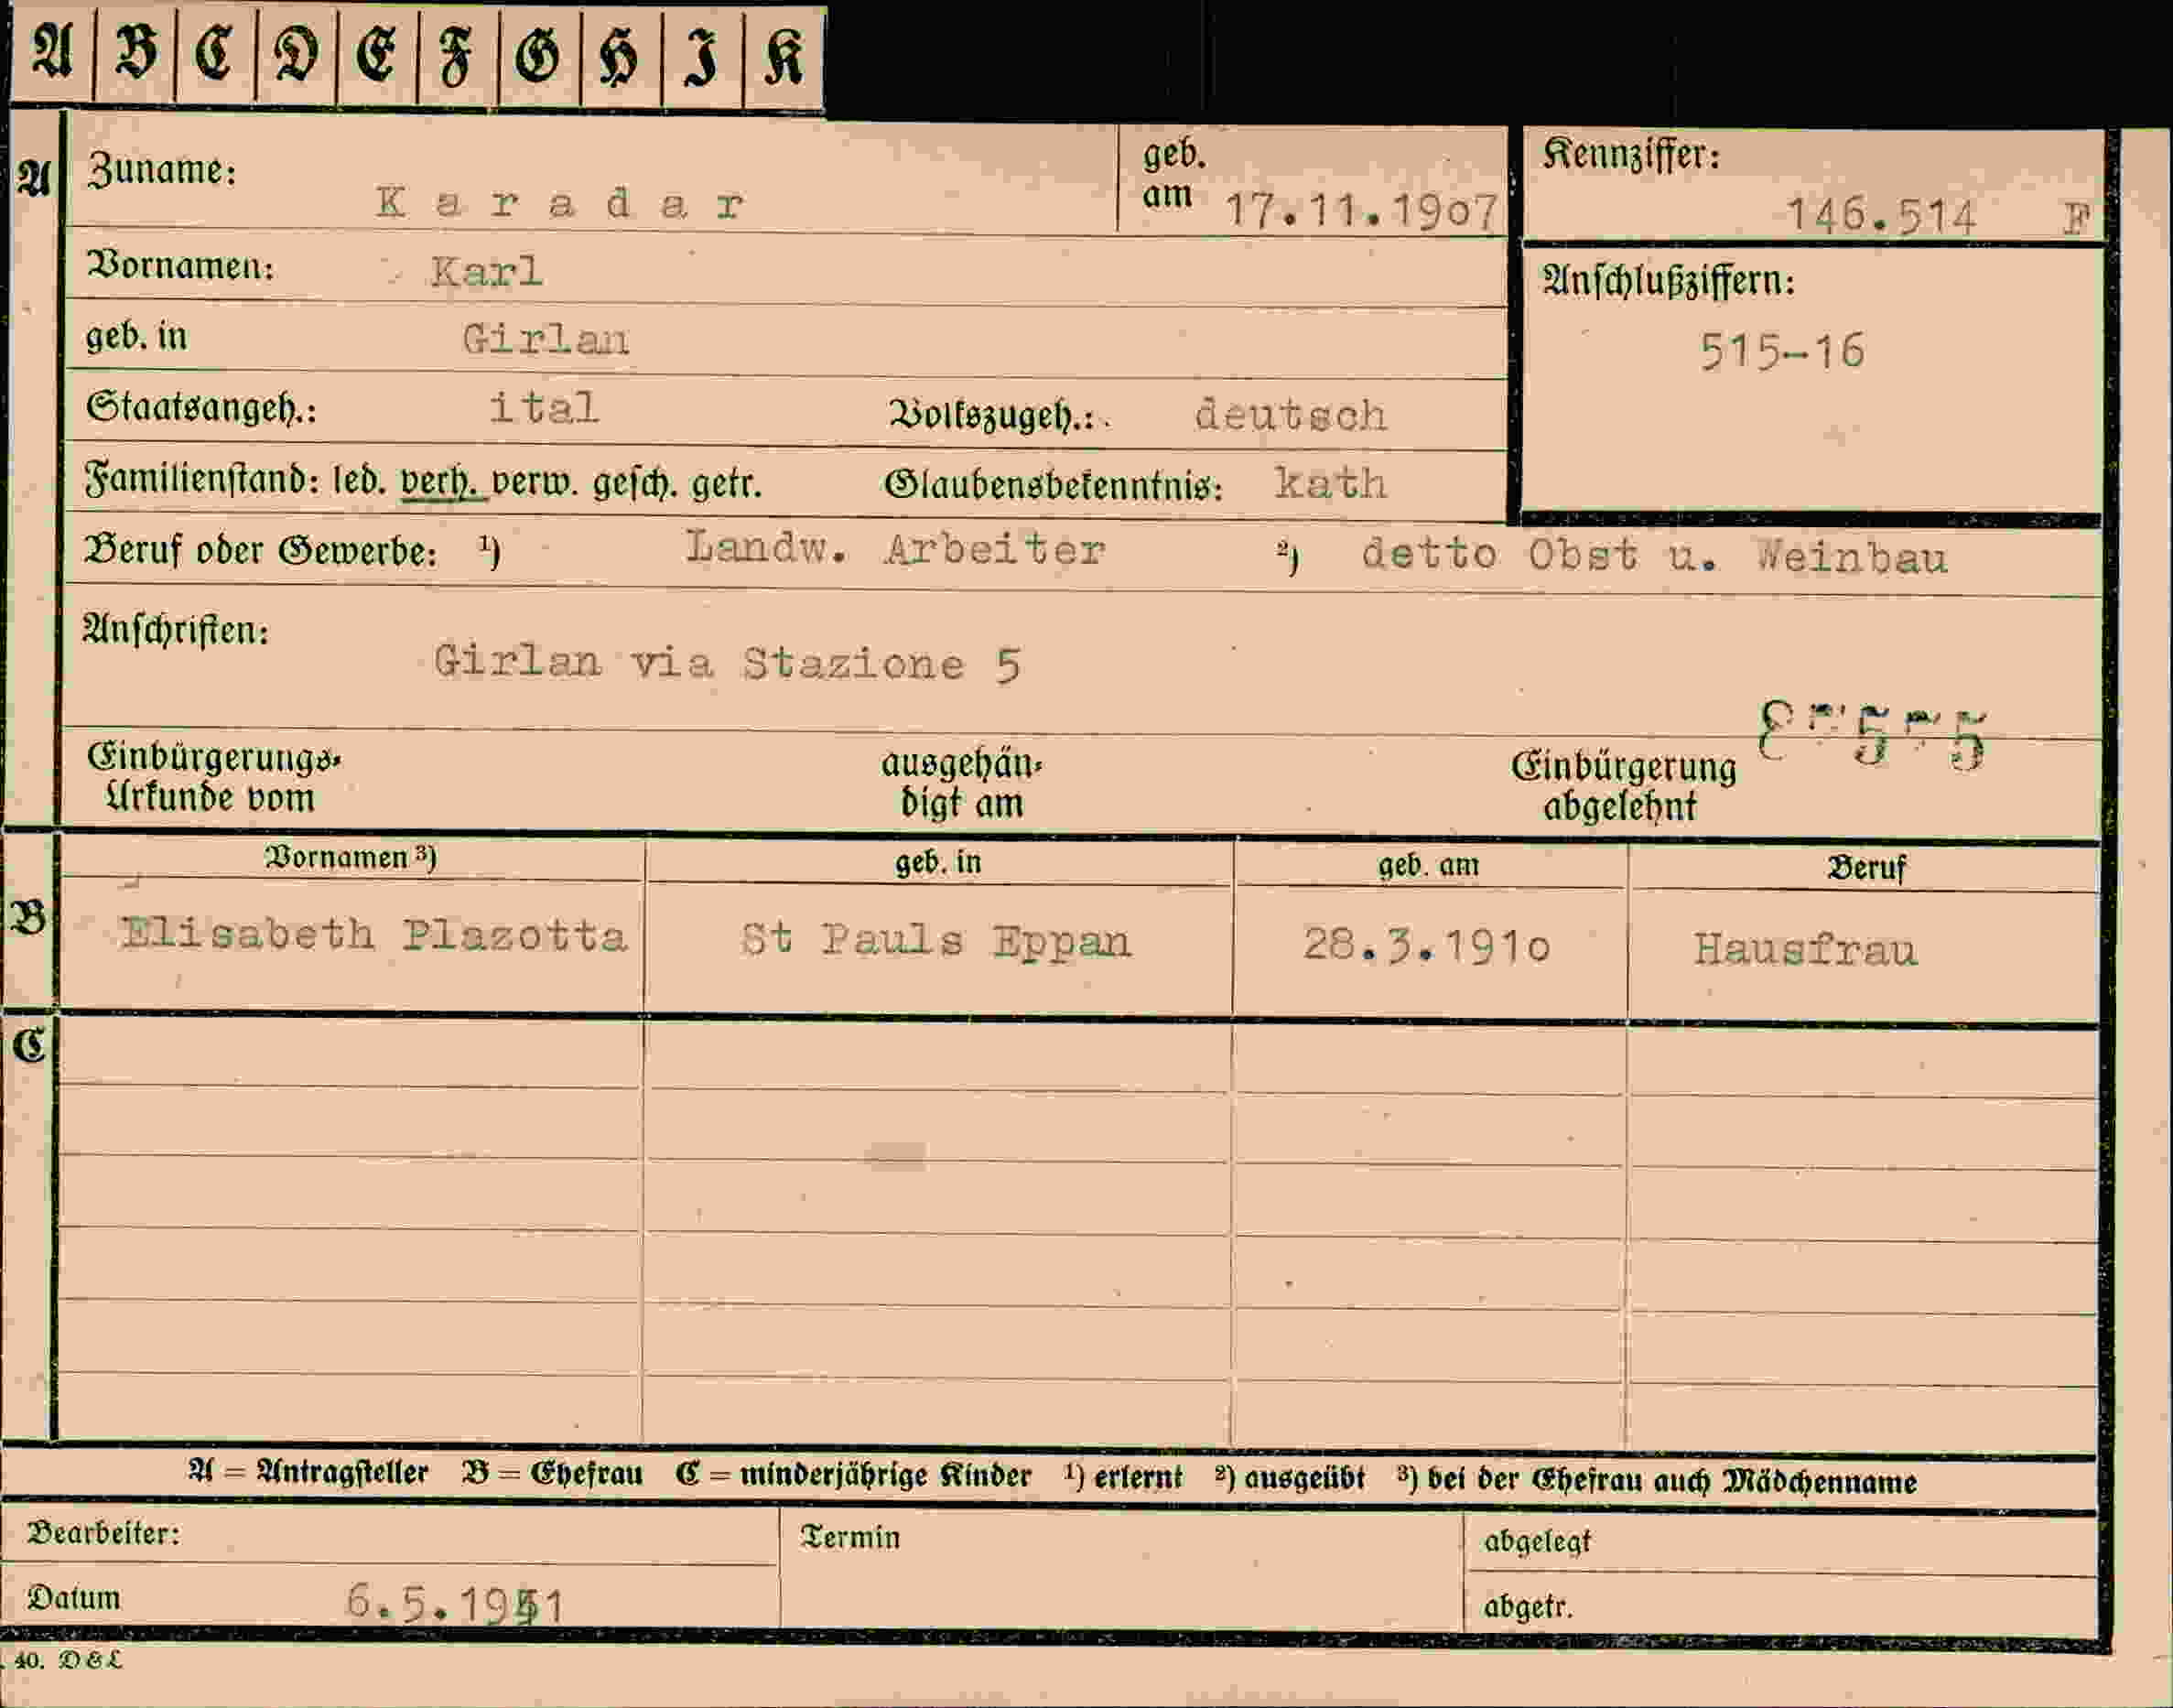 A B C D E F G H I K
A Zuname: Karadar geb. am 17.11.1907 Kennziffer: 146.514 F
Vornamen: Karl
Anschlußziffern: 515-16
geb. in Girlan
Staatsangeh.: ital Volkszugeh.: deutsch
Familienstand: led. verh. verw. gesch. getr. Glaubensbekenntnis: kath
Beruf oder Gewerbe: ¹) Landw. Arbeiter ²) detto Obst u. Weinbau
Anschriften: Girlan via Stazione 5
Einbürgerungs-
Urkunde vom
ausgehän-
digt am
Einbürgerung
abgelehnt
Vornamen ³) geb. in geb. am Beruf
B Elisabeth Plazotta St Pauls Eppan 28.3.1910 Hausfrau
C
A = Antragsteller B = Ehefrau C = minderjährige Kinder ¹) erlernt ²) ausgeübt ³) bei der Ehefrau auch Mädchenname
Bearbeiter: Termin abgelegt
Datum 6.5.1941 abgetr.
40. D & L